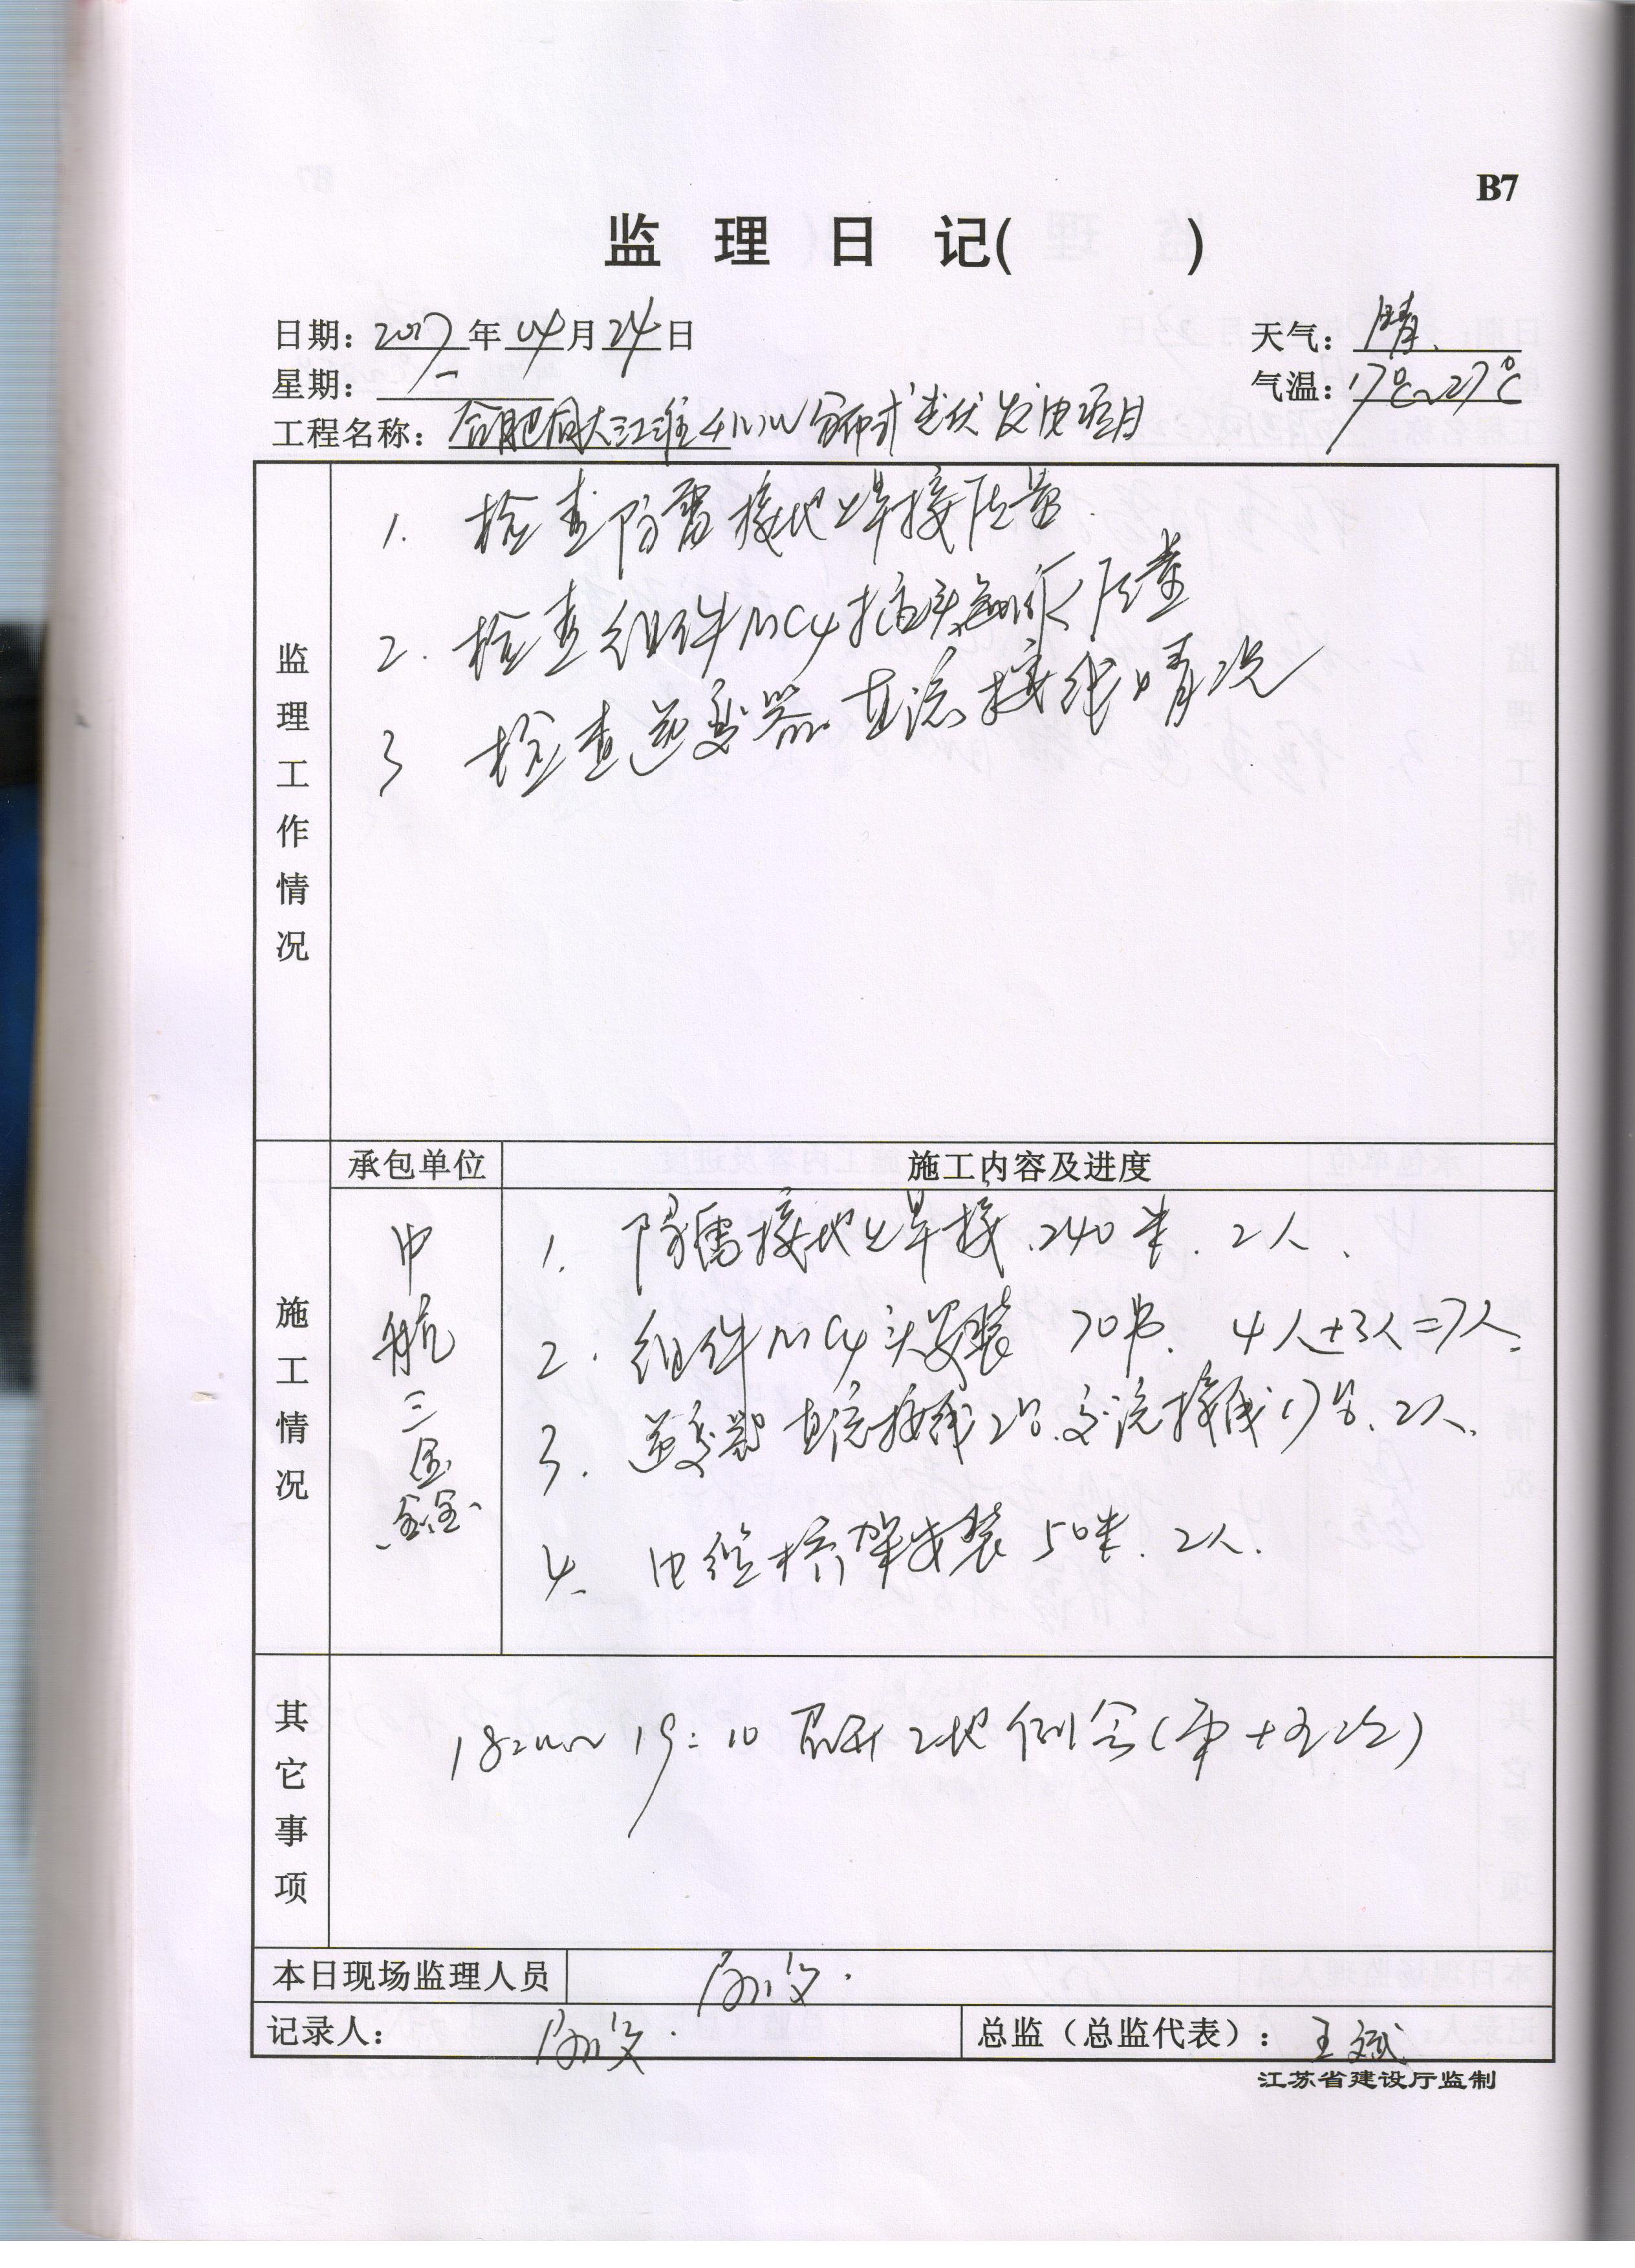 B7
监 理 日 记( )
日期: 2017 年 04 月 24 日 天气: 晴.
星期: 一 气温: 17℃~27℃
工程名称: 合肥恒大江淮4MW分布式光伏发电项目
监理工作情况
1. 检查防雷接地焊接质量.
2. 检查组件MC4插头制作质量
3 检查逆变器直流接线情况
承包单位 施工内容及进度
施工情况
中航三鑫
1. 防雷接地焊接.240米.2人.
2. 组件MC4头安装 70串. 4人+3人=7人.
3. 逆变器直流接线2台.交流接线17台.2人.
4. 电缆桥架安装50米.2人.
其它事项
19:10 召开工地例会(第十五次)
本日现场监理人员
记录人: 总监(总监代表): 王斌
江苏省建设厅监制